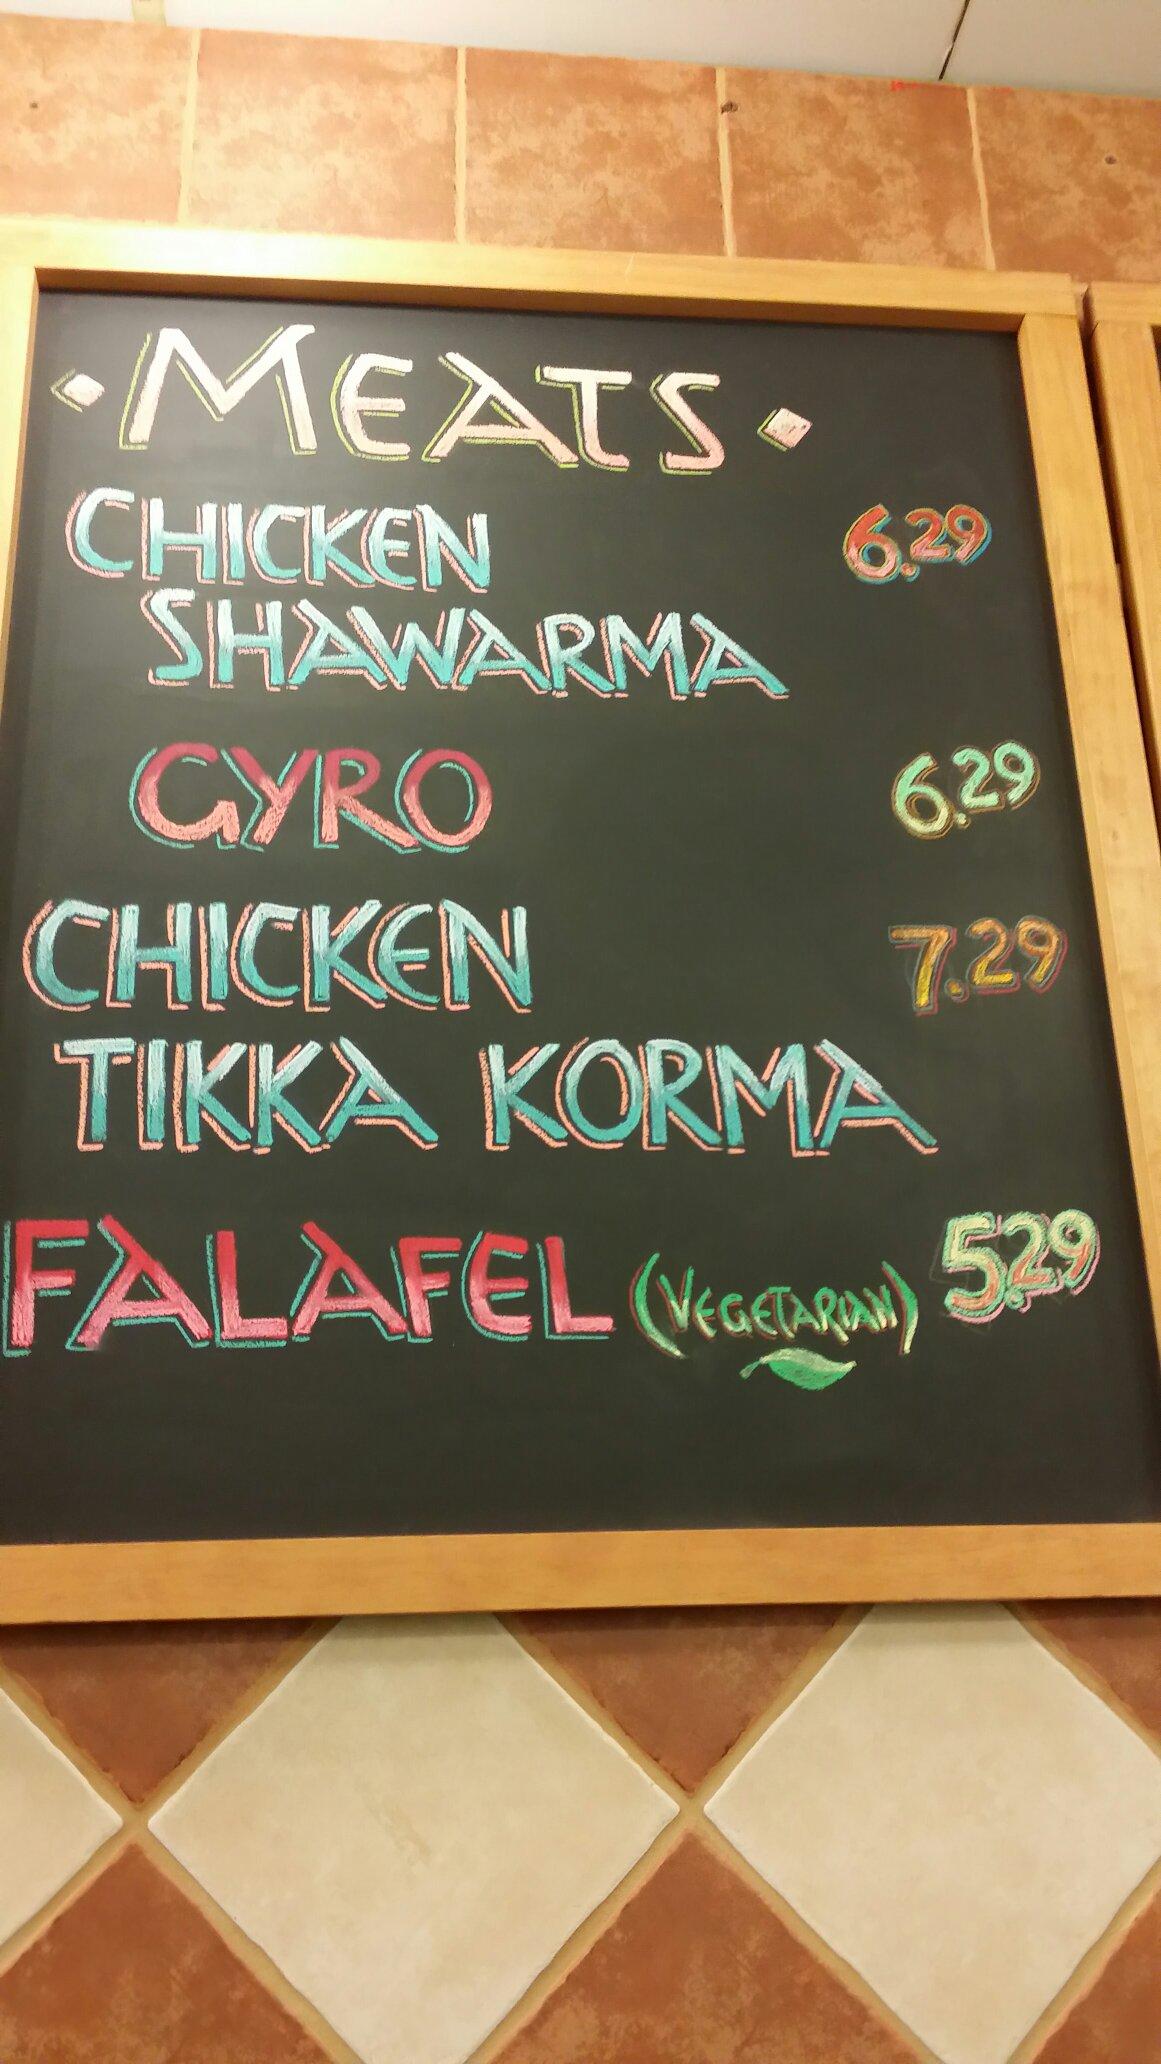 MEATS
CHICKEN 6.29
SHAWARMA
GYRO 6.29
CHICKEN 7.29
TIKKA KORMA
FALAFEL (VEGETARIAN) 5.29